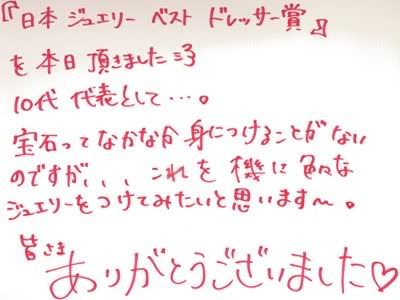 『日本 ジュエリー ベスト ドレッサー賞』
を本日頂きました=3
10代 代表として・・・。
宝石ってなかなか身につけることがない
のですが、、、これを機に色々な
ジュエリーをつけてみたいと思います〜。
皆さま
ありがとうございました♡